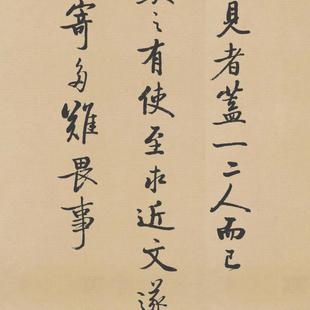 見者蓋一二人而已
之有使至求近文遂
寄多難畏事